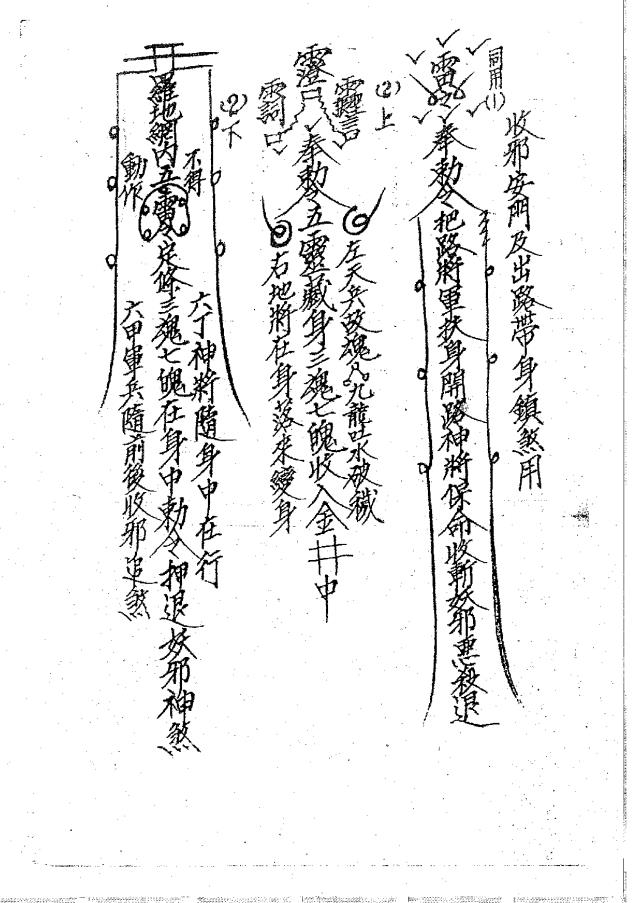 收邪安門及出路帶身鎖煞用
同用(1)
奉勅令把路將軍扶身開路神將保命收斬妖邪惡殺退
(2)上
奉勅令五靈藏身三魂七魄收入金井中
左天兵故魂九龍吐水破穢
右地將在身落來變身
(2)下
羅地網內五雷
不得
動作
定條三魂七魄在身中勅令押退妖邪神煞
六丁神將隨身中在行
六甲軍兵隨前後收邪退煞